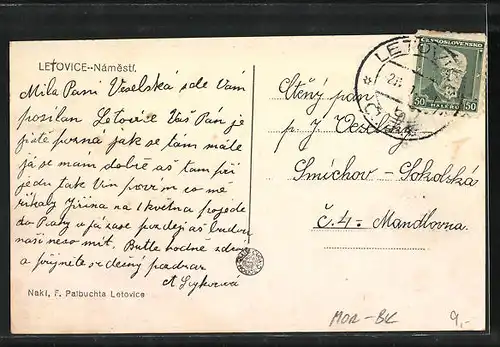 LETOVICE--Náměstí.
Mila Pani Veselská zde Vám
posílan Letovice Váš Pán je
jistě poznà jak se tam máte
já se mam dobře aš tam při
jedu tak Vin povim co mě
řikaly Jiřina na 1 května pojede
do Prahy a já zase pozdeji aš budou
naši neso mit. Buťte hodně zdrav
a přijměte srdečný pozdrav
A Sykorová
Nakl. F. Palbuchta Letovice
LETOVICE
ČESKOSLOVENSKO
50 50
HALÉŘŮ
Ctěný pan
p. J. Veselský
Smíchov - Sokolská
č. 4 - Mandlovna.
MOR-BK
9,-